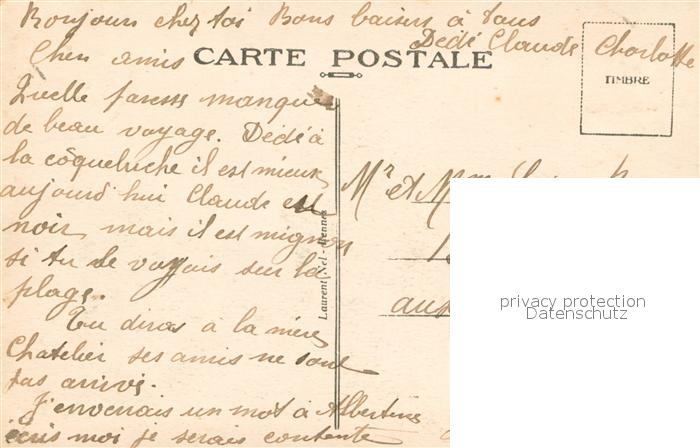 Bonjour chez toi Bons baisers à tous
Dédé Claude Charlotte
Chers amis
CARTE POSTALE
TIMBRE
Quelle paresse manquer
de beau voyage. Dédé à
la coqueluche il est mieux
aujourd'hui Claude est
noir mais il est mignon
si tu le voyais sur la
plage.
Tu diras à la mère
Chatelier ses amis ne sont
pas arrivé.
J'envenais un mot à Albertine
écris moi je serais contente
Mr et Mme
Laurent-Nel-Rennes
privacy protection
Datenschutz